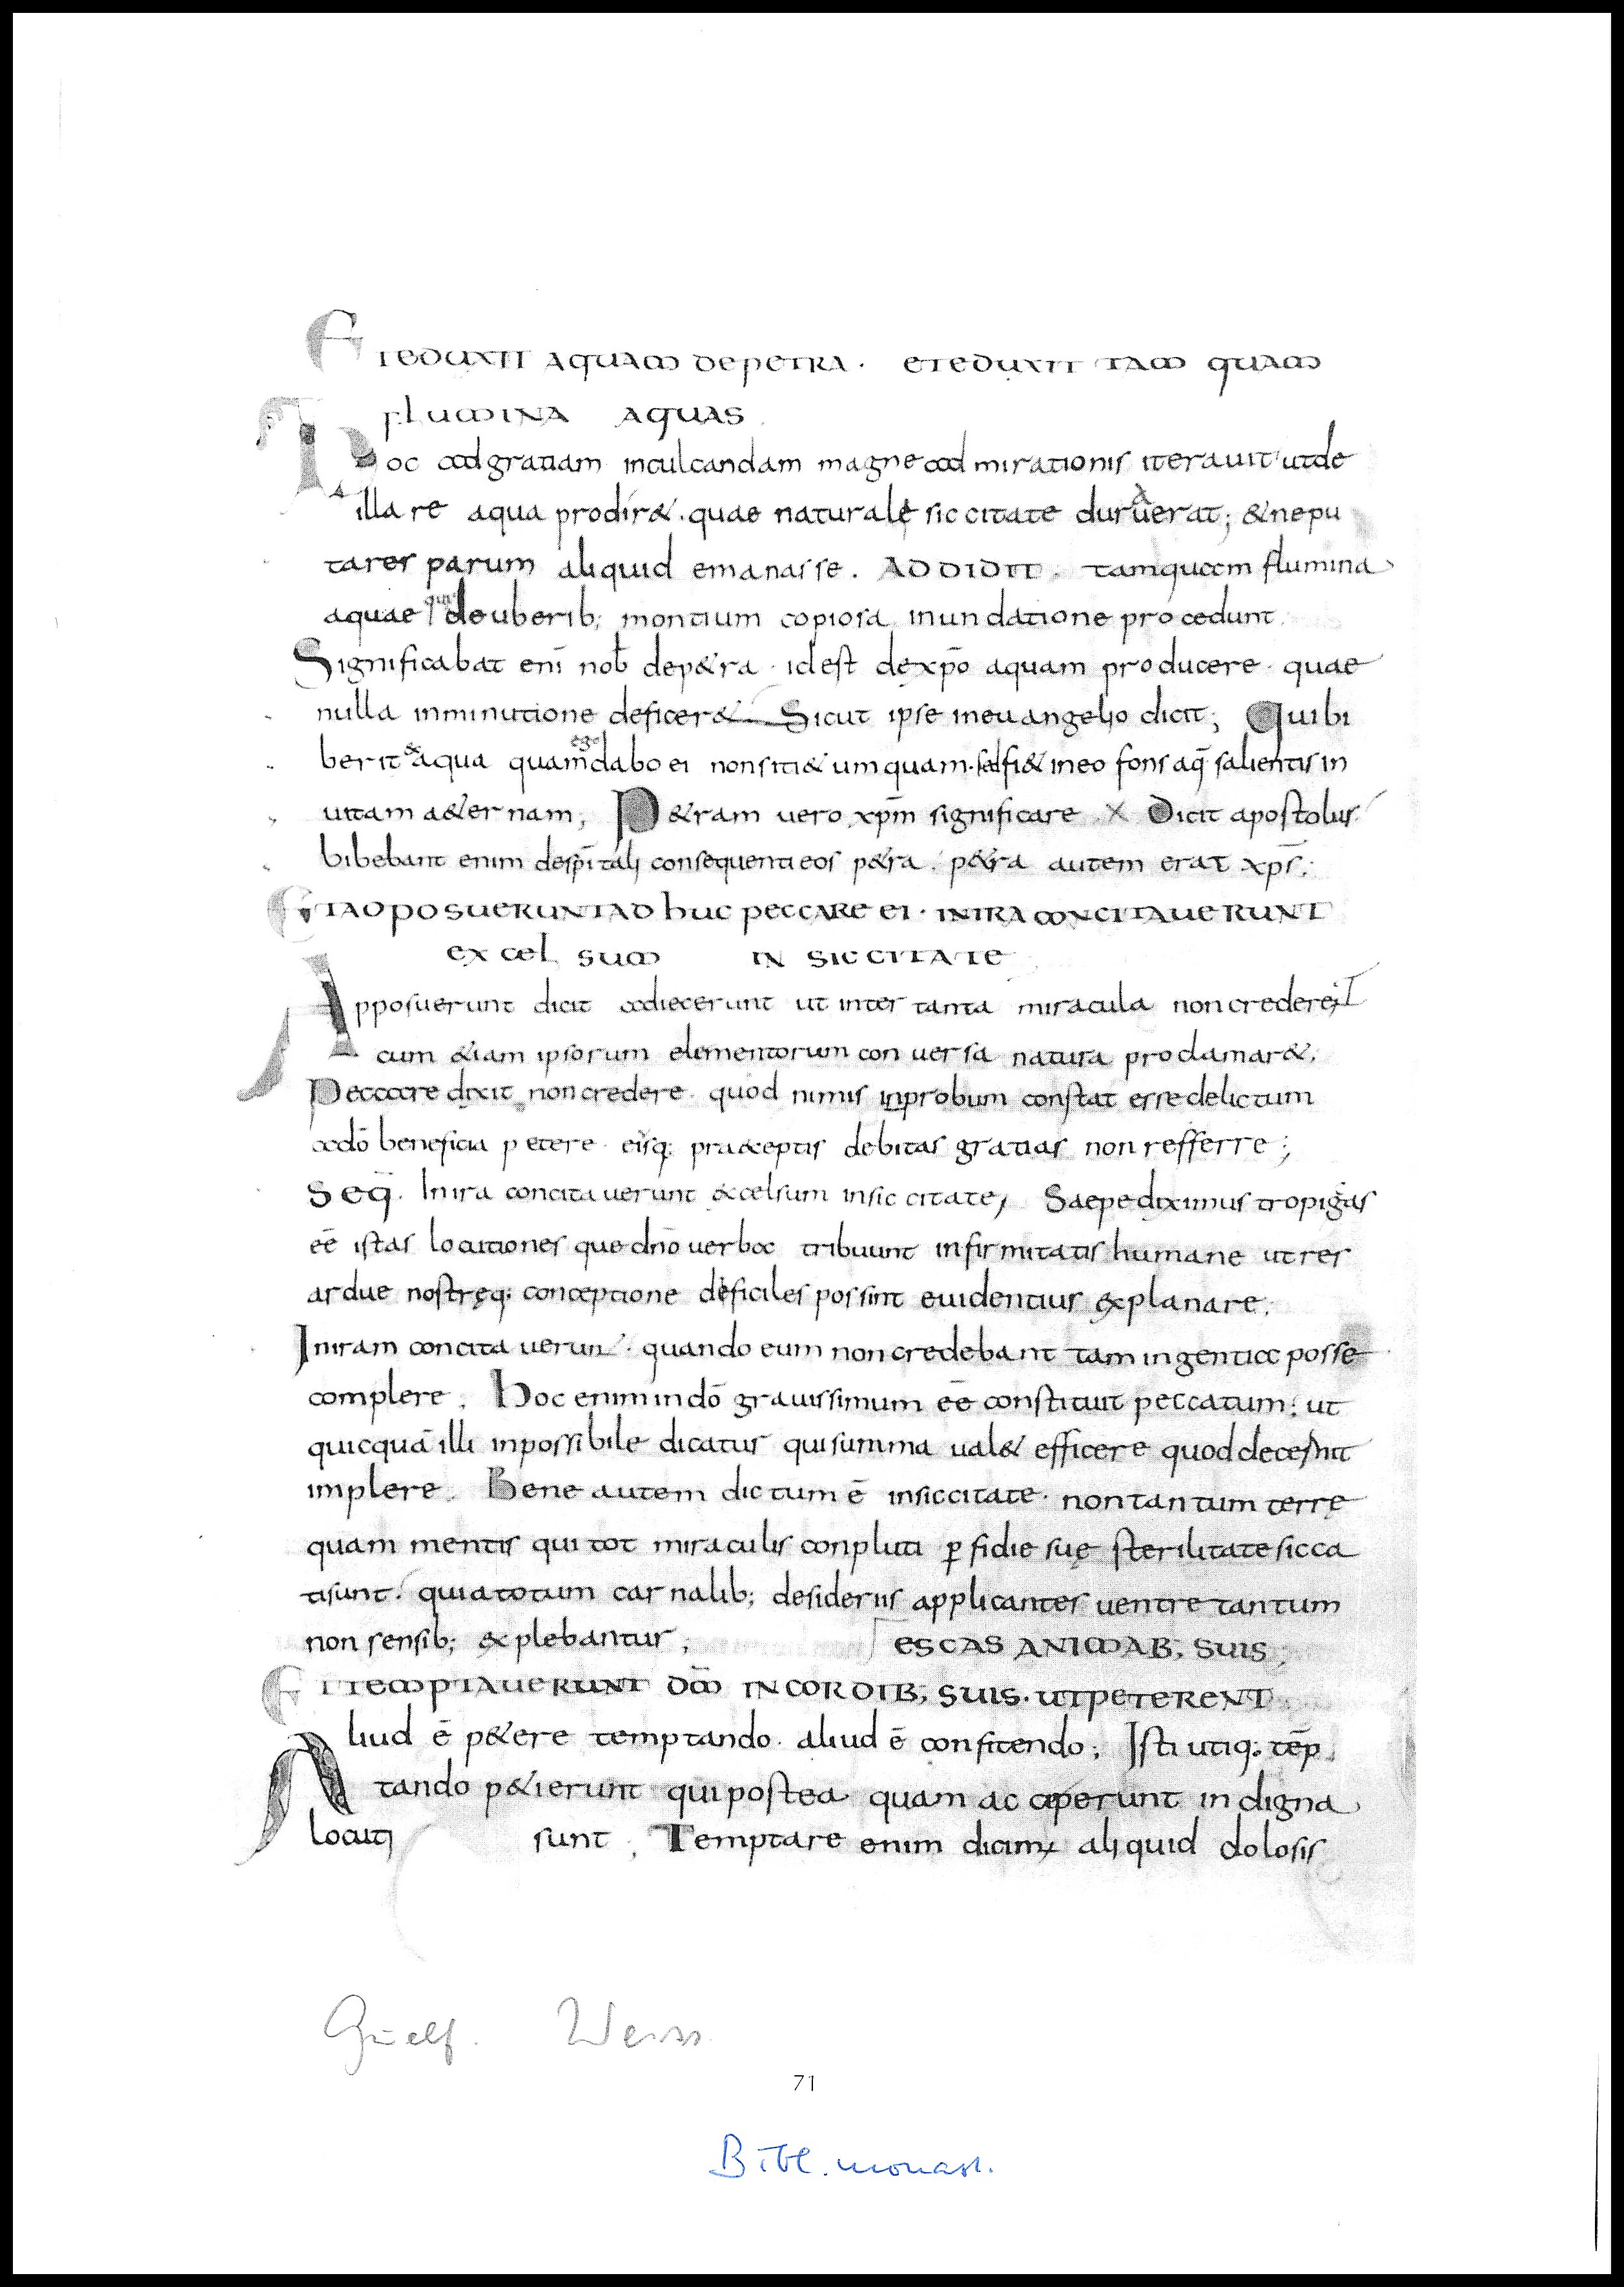 ETEDUXIT AQUAM DEPETRA · ETEDUXIT TAM QUAM
FLUMINA AQUAS
Hoc ad gratiam inculcandam magne ad mirationis iterauit utde
illa re aqua prodir&. quae naturalẹ siccitate duruerat; & nepu
tares parum aliquid emanasse. ADDIDIT. tamquam flumina
aquae qui de uberib; montium copiosa inundatione procedunt.
Significabat enī nob̄ dep&ra · idest dexp̄o aquam producere · quae
nulla inminutione deficer&. Sicut ipse ineuangelio dicit; Quibi
berit ex aqua quam ego dabo ei nonsiti& umquam · sed fi& ineo fons aq̄ salientis in
uitam a&ernam; P&ram uero xp̄m significare Dicit apostolus
bibebant enim desp̄itali consequenti eos p&ra · p&ra autem erat xp̄s;
ETADPOSUERUNT ADHUC PECCARE EI · INIRA CONCITAUERUNT
EXCELSUM IN SICCITATE
Apposuerunt dicit adiecerunt ut inter tanta miracula noncrederent
cum &iam ipsorum elementorum conuersa natura proclamar&;
Peccare dixit noncredere · quod nimis inprobum constat esse delictum
adō beneficia petere · eisq; praeceptis debitas gratias non refferre;
Seq̄. Inira concitauerunt excelsum insiccitate; Saepe diximus tropicas
eē istas locutiones que dn̄o uerba tribuunt infirmitatis humane ut res
ardue nostręq; conceptione deficiles possint euidentius explanare;
Iniram concitauerunt · quando eum non credebant tam ingentia posse
complere; Hoc enim indō grauissimum eē constituit peccatum; ut
quicquā illi inpossibile dicatur qui summa ual& efficere quod decernit
implere. Bene autem dictum ē insiccitate · non tantum terrę
quam mentis qui tot miraculis conpluti p̱fidie suę sterilitate sicca
ti sunt. quia totum carnalib; desideriis applicantes uentre tantum
non sensib; explebantur; ESCAS ANIMAB; SUIS;
ETTEMPTAUERUNT DM̄ INCORDIB; SUIS · UTPETERENT
Aliud ē p&ere temptando · aliud ē confitendo; Isti utiq; tēp
tando p&ierunt qui postea quam acceperunt indigna
locuti sunt; Temptare enim dicim; aliquid dolosis
Guelf. Weiss.
71
Bibl. monast.